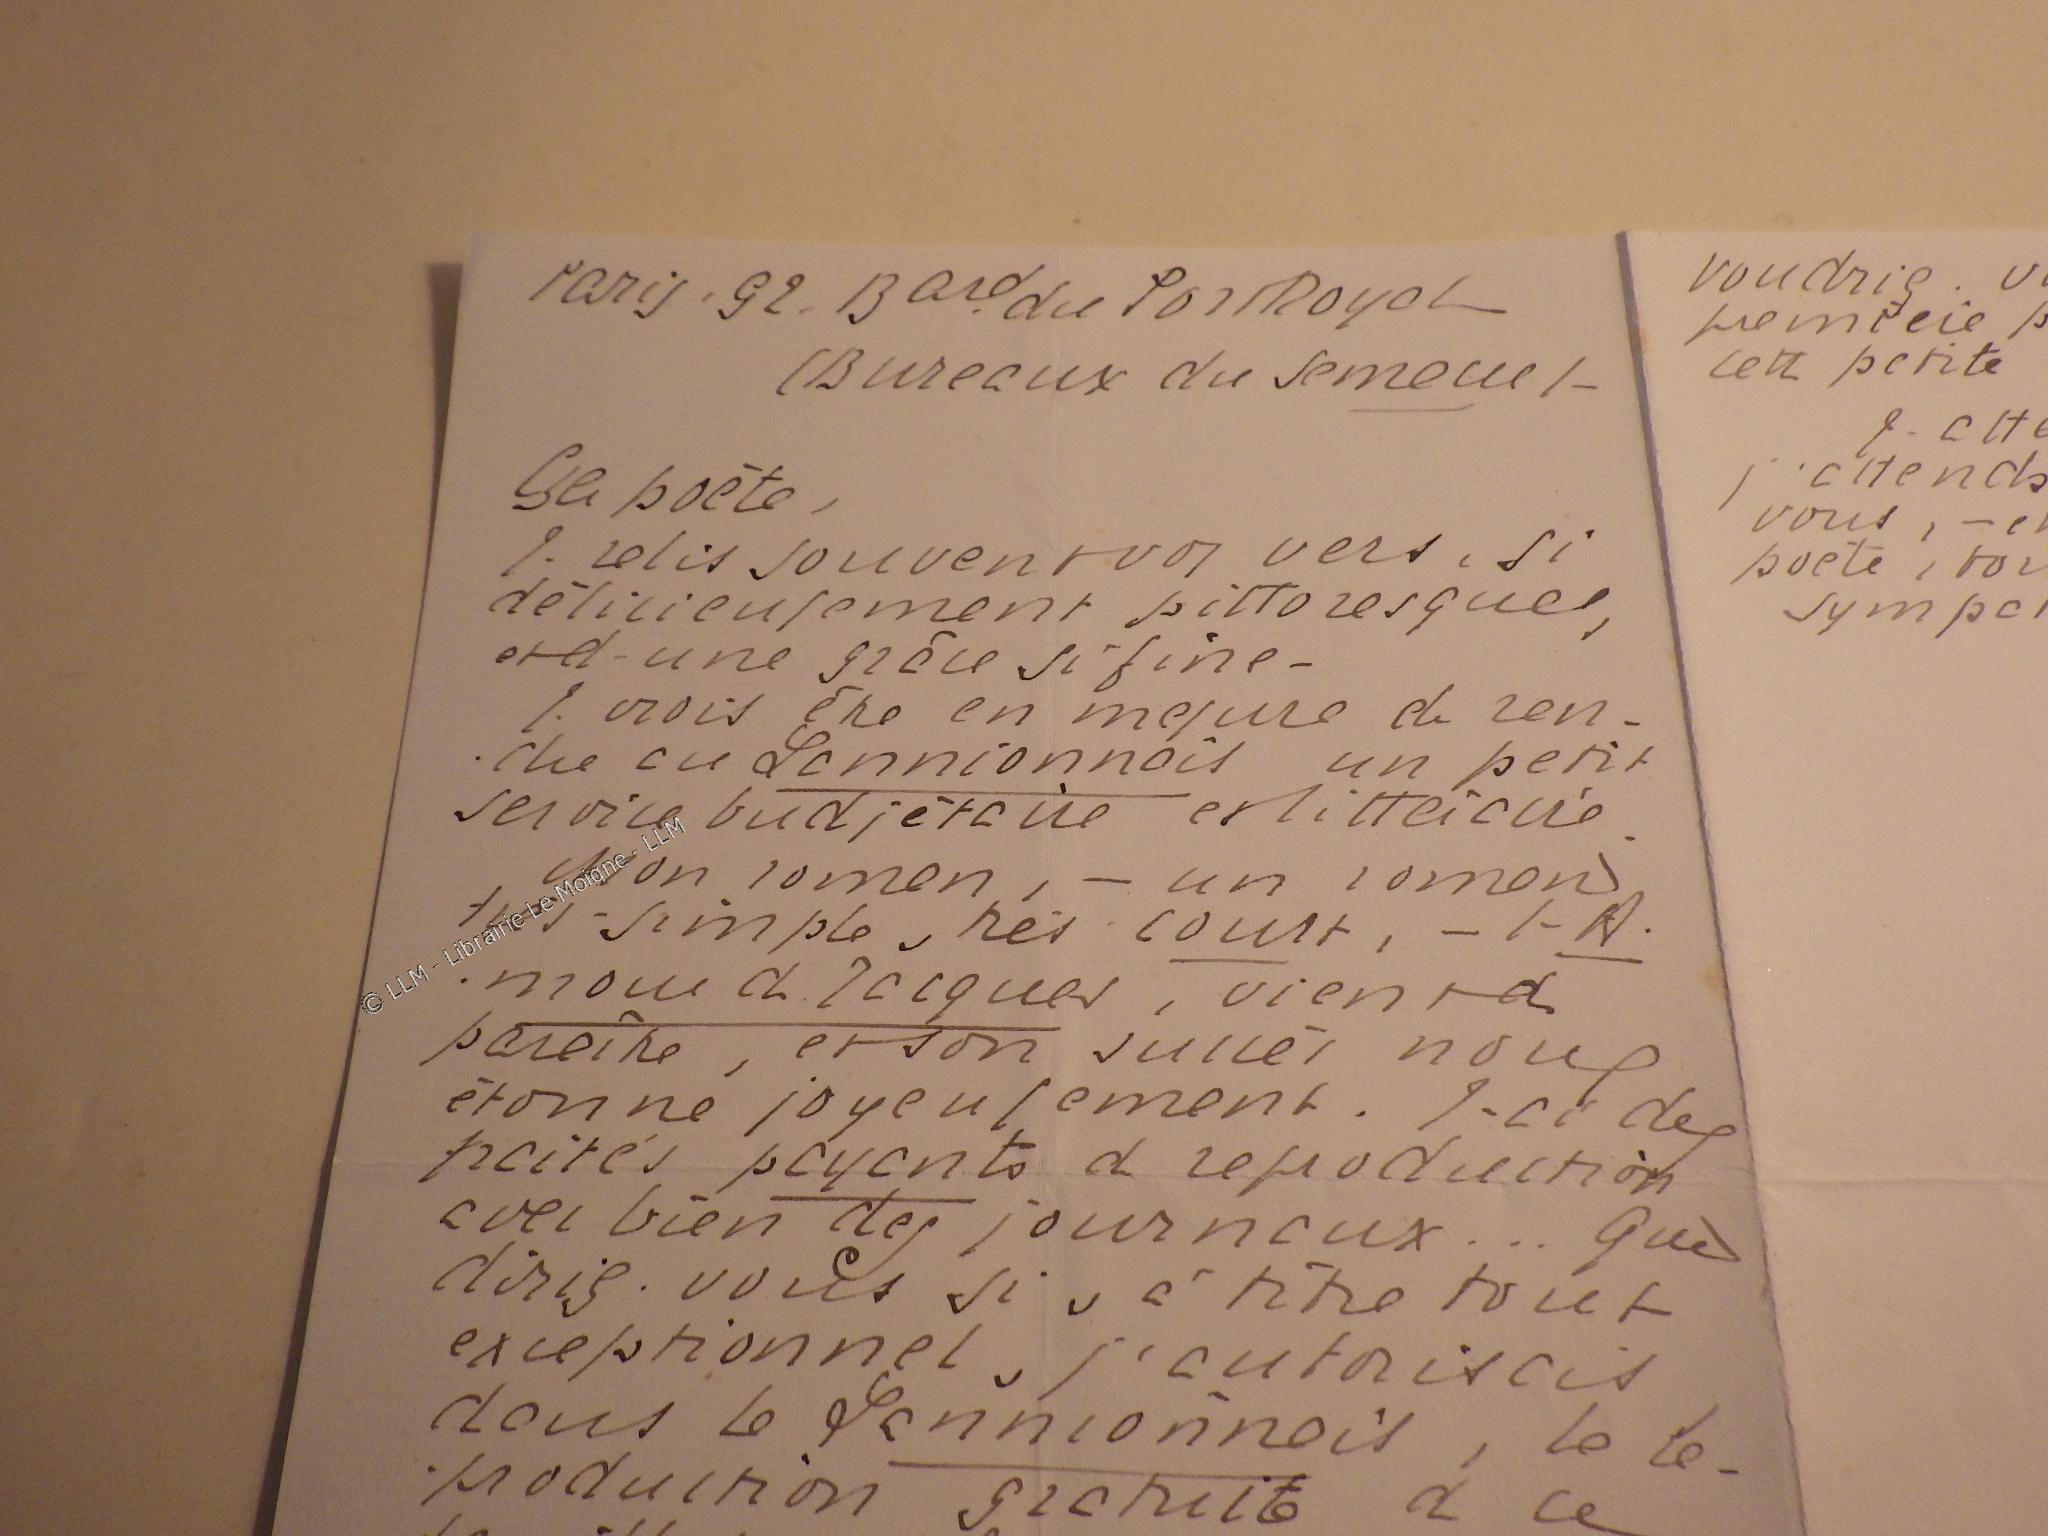 Paris. 92. Bard. du Port Royal
(Bureaux du Semeur)
poète,
J- relis souvent vos vers, si
délicieusement pittoresques,
et d'une grâce si fine-
J- crois être en mesure de ren-
-dre au Lannionnais un petit
service budjétaire et littéraire.
Mon roman, - un roman
très-simple, très-court, - l'A-
-mour de Jacques, vient de
paraître, et son succès nous
étonne joyeusement. J'ai des
traités payants de reproduction
avec bien des journaux... Que
diriez-vous si, à titre tout
exceptionnel, j'autorisais
dans le Lannionnais, la re-
-production gratuite de ce
voudriez-
première
cette petite
J-
j'attends
vous, -
poète,
© LLM - Librairie Le Moigne - LLM